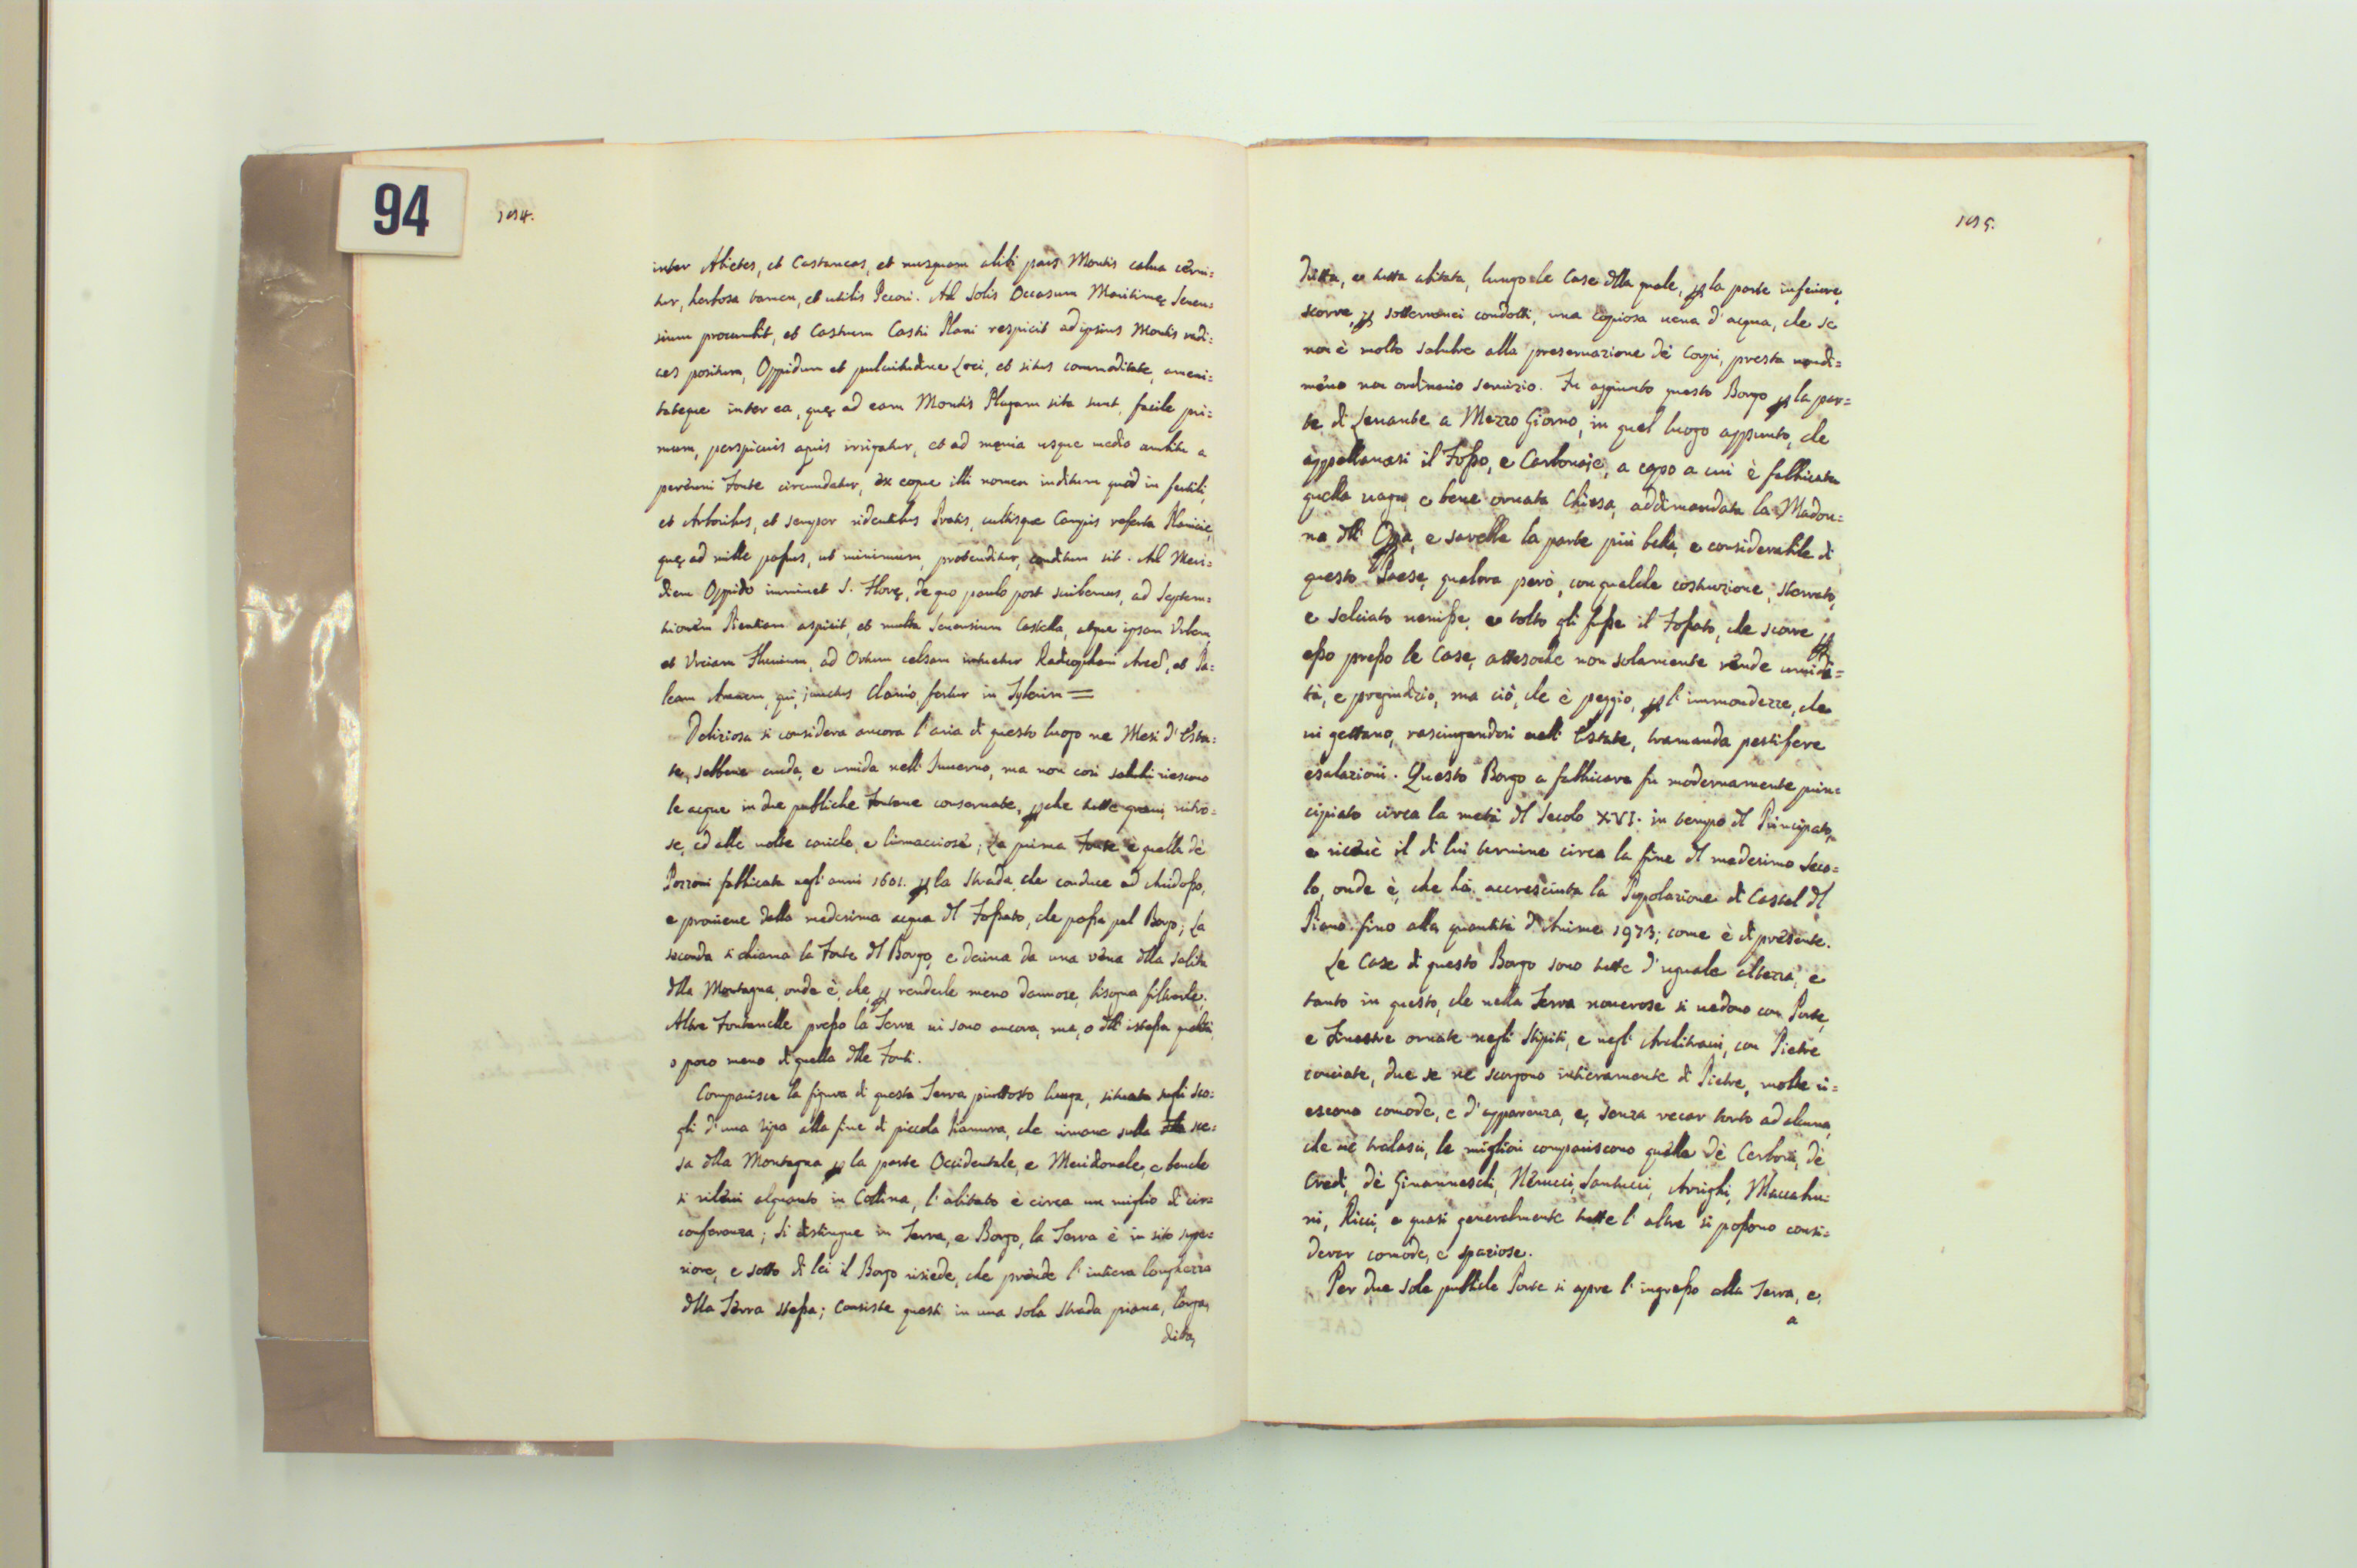 94
194.
inter Abietes, et Castaneas, et nusquam alibi pars Montis calva cerni=
tur, herbosa tamen, et utilis Pecori. Ad Solis Occasum Maritimę Senen=
sium procumbit, et Castrum Casti Plani respicit ad ipsius Montis radi=
ces positum, Oppidum et pulcritudine Loci, et situs commoditate, ameni=
tateque inter ea, quę ad eam Montis Plagam sita sunt, facile pri=
mum, perspicuis aquis irrigatur, et ad męnia usque medio ambitu a
perenni Fonte circumdatur, ex eoque illi nomen inditum quod in fertili,
et Arboribus, et semper ridentibus Pratis, cultisque Campis referta Planicie,
quę ad mille passus, ut minimum, protenditur, conditum sit. Ad Meri=
diem Oppido imminet S. Florę, de quo paulo post scribemus, ad Septem=
trionem Pientiam aspicit, et multa Senensium Castella, atque ipsam Urbem,
et Urciam Flumen, ad Ortum celsam intuetur Radicophani Arcem, et Pa=
leam Amnem, qui, junctus Clanio, fertur in Tyberim =
Deliziosa si considera ancora l'aria di questo luogo ne Mesi d'Esta=
te, sebbene cruda, e umida nell'Inverno, ma non così salubri riescono
le acque in due pubbliche Fontane conservate, perche tutte gravi, nitro=
se, ed alle volte cariche, e limacciose; La prima Fonte è quella dè
Pozzoni fabbricata negl'anni 1601. per la Strada, che conduce ad Arcidosso,
e proviene dalla medesima acqua del Fossato, che passa pel Borgo; La
seconda si chiama la Fonte del Borgo, e deriva da una vena della Salita
della Montagna, onde è, che, per renderle meno dannose, bisogna filtrarle.
Altre Fontanelle presso la Terra vi sono ancora, ma, o dell'istessa qualità,
o poco meno di quella delle Fonti.
Comparisce la figura di questa Terra piuttosto lunga, situata sugli Sco=
gli d'una ripa alla fine di piccola Pianura, che rimane sulla sce=
sa della Montagna per la parte Occidentale, e Meridionale, e benche
si rilevi alquanto in Collina, l'abitato è circa un miglio di cir=
conferenza; Si distingue in Terra, e Borgo, la Terra è in sito supe=
riore, e sotto di lei il Borgo risiede, che prende l'intiera longhezza
della Terra stessa; Consiste questi in una sola Strada piana, larga,
ditta,
195.
Ditta, e tutta abitata, lungo le Case della quale, per la parte inferiore,
scorre, per sotterranei condotti, una copiosa vena d'acqua, che se
non è molto salubre alla preservazione dè Corpi, presta nondi=
meno non ordinario servizio. Fu aggiunto questo Borgo per la par=
te di Levante a Mezzo Giorno, in quel luogo appunto, che
appellavasi il Fosso, e Carbonaje, a capo a cui è fabbricata
quella vaga, e bene ornata Chiesa, addimandata la Madon=
na dell'Opa, e sarebbe la parte più bella, e considerabile di
questo Paese, qualora però, con qualche costruzione, sterrato,
e selciato venisse, e tolto gli fusse il Fossato, che scorre per
esso presso le Case, attesoche non solamente rende umidi=
tà, e pregiudizio, ma ciò, che è peggio, per l'immondezze, che
vi gettano, rasciugandosi nell'Estate, tramanda pestifere
esalazioni. Questo Borgo a fabbricare fu modernamente prin=
cipiato circa la metà del Secolo XVI. in tempo del Principato,
e ricevè il di lui termine circa la fine del medesimo Seco=
lo, onde è, che hà accresciuta la Popolazione di Castel del
Piano fino alla quantità d'Anime 1973; come è di presente.
Le Case di questo Borgo sono tutte d'uguale altezza, e
tanto in questo, che nella Terra numerose si vedono con Porte,
e Finestre ornate negli Stipiti, e negl'Architravi, con Pietre
conciate, due se ne scorgono intieramente di Pietre, molte ri=
escono comode, e d'apparenza, e, senza recar torto ad alcuna,
che ne tralasci, le migliori compariscono quelle dè Carboni, dè
Credi, dè Ginanneschi, Nerucci, Santucci, Arrighi, Maccabru=
ni, Ricci, e quasi generalmente tutte l'altre si possono consi=
derar comode, e spaziose.
Per due sole pubbliche Porte si apre l'ingresso alla Terra, e,
a